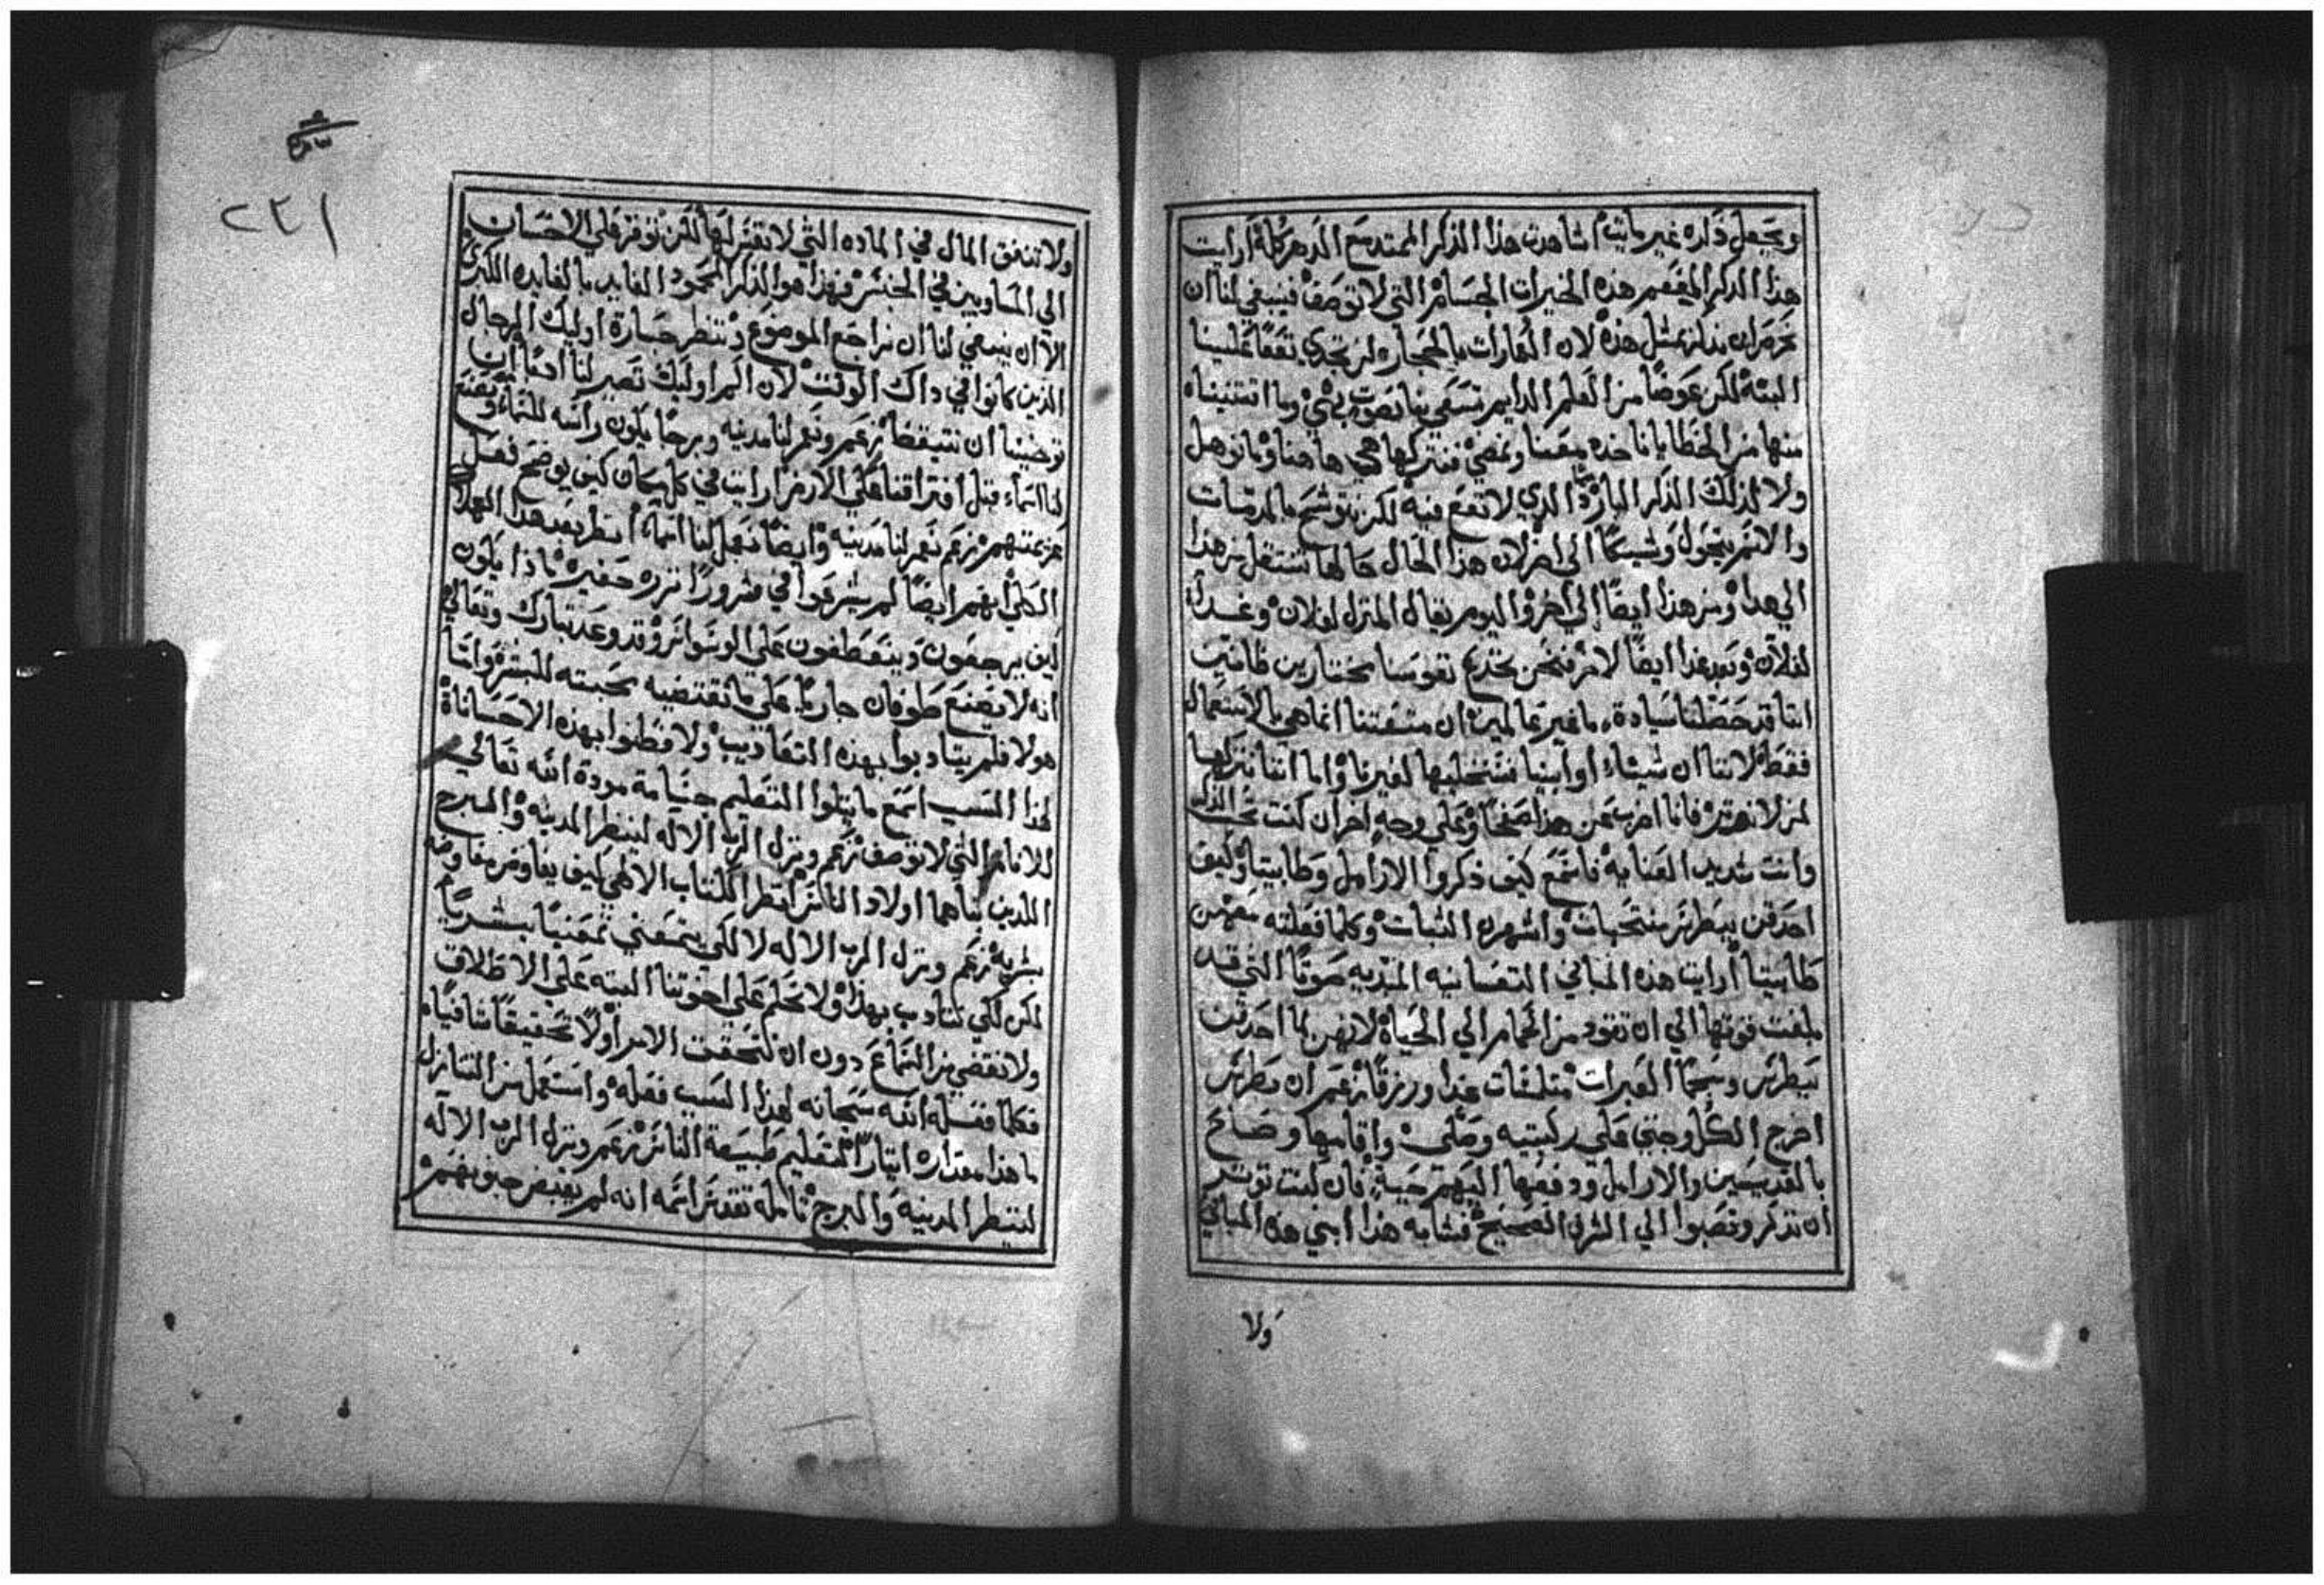 ويجعل ذكره غير مايت اشاهدت هذا الذكر الممتد مع الدهر كله ارايت
هذا الذكر المفعم هذه الخيرات الجسام التي لا توصف فينبغي لنا ان
نروم ان نذكر بمثل هذه لان العمارات بالحجاره لن تجدي نفعًا علينا
البته لكن عوضًا من القلم الدايم تسعى بنا بصوت بهي وما اقتنيناه
منها من الخطايا ناخذه معنا ونمضي فنتركها هي هاهنا وما نوهل
ولا لذلك الذكر البارد الذي لا نفع فيه لكن نتوشح بالمذمات
والاسم يتحول وشيكًا الى اخر لان هذا الحال حالها تنتقل من هذا
الى هذا ومن هذا ايضًا الى اخر واليوم يقال المنزل لفلان وغدا
لفلان وبعد غدا ايضًا لاخر فنحن نخدع نفوسنا مختارين ظانين
اننا قد حفظنا سيادة ما غير عالمين ان منفعتنا انما هي بالاستعمال
فقط لاننا ان شينا او ابينا فسنخليها لغيرنا واما اننا نتركها
لمن لا نريد فانا اضرب عن هذا صفحًا وعلى وجه اخر ان كنت تحب الذكر
وانت شديد العنايه فاسمع كيف ذكروا الارامل وطابيتا وكيف
احدقن ببطرس منتحبات واشهرن الثياب وكلما فعلته معهن
طابيتا ارايت هذه المباني النفسانيه المبديه صوتًا التي قد
بلغت قوتها الى ان تقود من الحمام الى الحياة لانهن لما احدقن
ببطرس وسجمن العبرات ملتمسات غذا ورزقًا زعم ان بطرس
اخرج الكل وجثى على ركبتيه وصلى واقامها وصاح
بالقديسين والارامل ودفعها اليهم حية فان كنت توثر
ان تذكر وتصبوا الى الشرف الصحيح فشابه هذا ابني هذه المباني
ولا
٢٢١
ولا تنفق المال في الماده التي لا تقتبر لها لكن توفر على الاحسان
الى المساويين في الجنس فهذا هو الذكر المحمود الفايد بالفايده الكبرى
الا ان ينبغي لنا ان نراجع الموضوع وننظر جسارة اوليك الرجال
الذين كانوا في داك الوقت لان الم اوليك تصير لنا اسًا ان
توخينا ان نتيقظ زعم ونعمر لنا مدينه وبرجًا يكون راسه للسماء ونصنع
لنا اسماء قبل افتراقنا على الارض ارايت في كل مكان كيف يوضح فعل
عزيمتهم زعم نعمر لنا مدينه وايضًا نعمل لنا اسماء انظر بعد هذا الهلاك
الكلي انهم ايضًا لم يشرعوا في شرورًا نزره حقيره ماذا يكون
كيف يرجعون وينعطفون على الوسواس وقد وعد تبارك وتعالى
انه لا يصنع طوفان جاريًا على ما تقتضيه محبته للبشر وانما
هولا فلم يتادبوا بهذه التقاديب ولا فطنوا بهذه الاحسانات
لهذا السبب اسمع ما يتلوا لتتعلم جسامة مودة الله تعالى
للانام التي لا توصف زعم ونزل الرب الاله لينظر المدينه والبرج
اللذين بناهما اولاد الناس انظر الكتاب الالهي كيف يفاوض مفاوضه
بشريه زعم ونزل الرب الاله لا لكي يتمعني تمعنيًا بشريًا
لكن لكي نتادب بهذا ولا نحكم على اخوتنا البته على الاطلاق
ولا نقضي من السماع دون ان نتحقق الامر اولًا تحقيقًا شافيًا
فكلما فعله الله سبحانه لهذا السبب فعله واستعمل من التنازل
ما هذا مقداره ايثارًا لتعليم طبيعة الناس زعم ونزل الرب الاله
لينظر المدينه والبرج تامله تقدس اسمه انه لم يقبض جنونهم